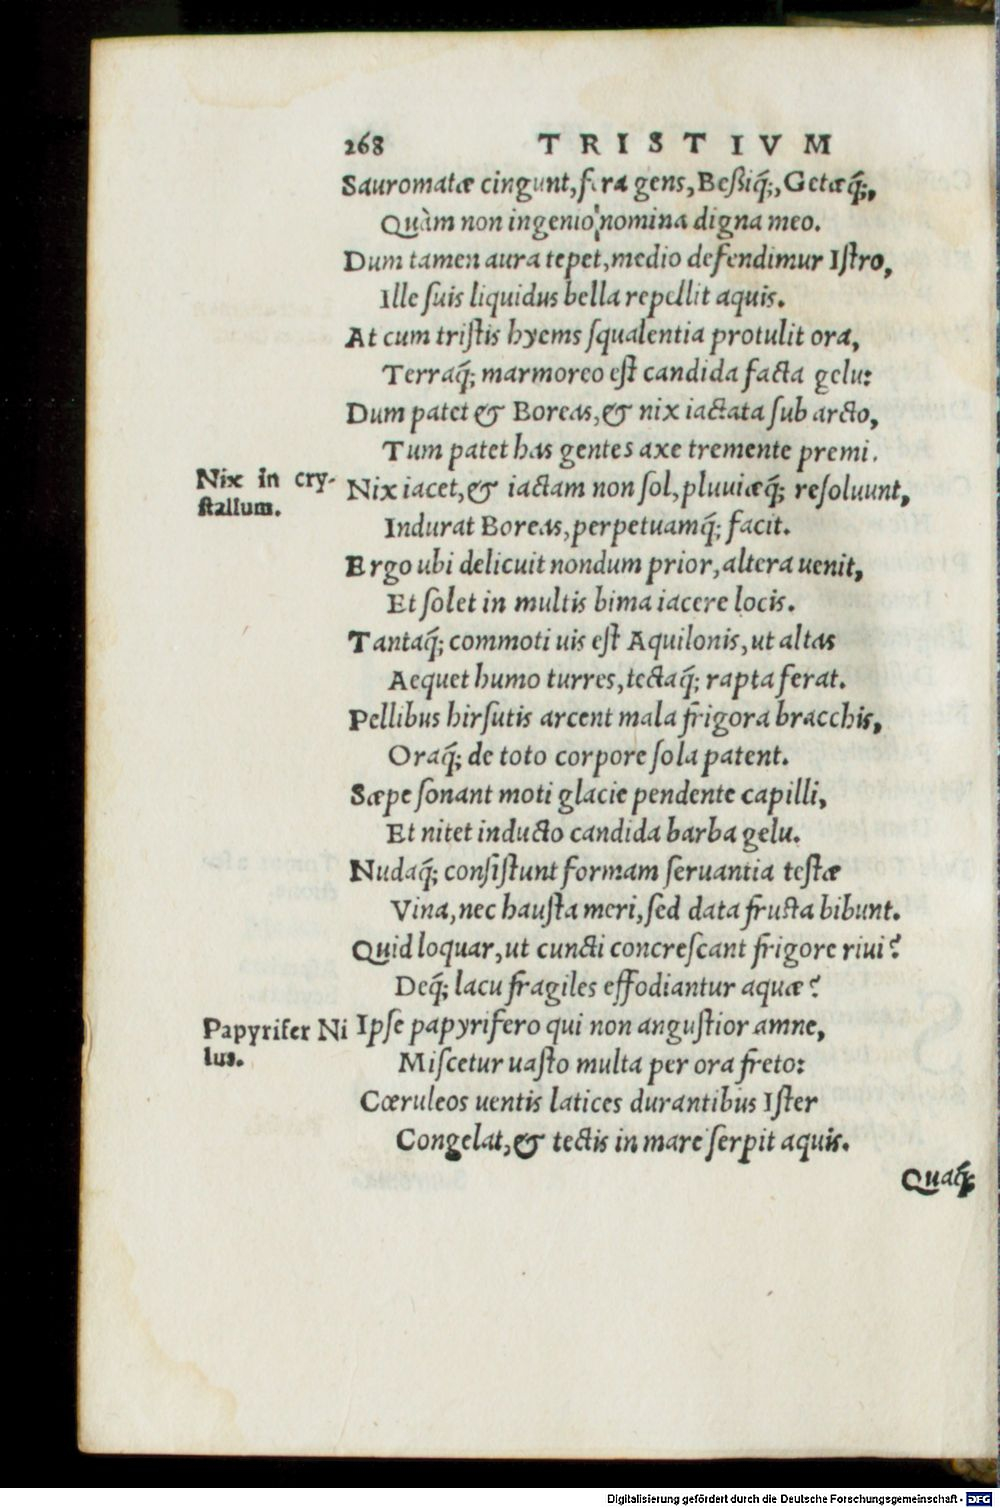 268 TRISTIVM
Sauromatæ cingunt, fera gens, Beßiq́;, Getæq́;,
Quàm non ingenio nomina digna meo.
Dum tamen aura tepet, medio defendimur Iſtro,
Ille ſuis liquidus bella repellit aquis.
At cum triſtis hyems ſqualentia protulit ora,
Terraq́; marmoreo eſt candida facta gelu:
Dum patet & Boreas, & nix iactata ſub arcto,
Tum patet has gentes axe tremente premi.
Nix in cry-
ſtallum.
Nix iacet, & iactam non ſol, pluuiæq́; reſoluunt,
Indurat Boreas, perpetuamq́; facit.
Ergo ubi delicuit nondum prior, altera uenit,
Et ſolet in multis bima iacere locis.
Tantaq́; commoti uis eſt Aquilonis, ut altas
Aequet humo turres, tectaq́; rapta ferat.
Pellibus hirſutis arcent mala frigora bracchis,
Oraq́; de toto corpore ſola patent.
Sæpe ſonant moti glacie pendente capilli,
Et nitet inducto candida barba gelu.
Nudaq́; conſiſtunt formam ſeruantia teſtæ
Vina, nec hauſta meri, ſed data fructa bibunt.
Quid loquar, ut cuncti concreſcant frigore riui?
Deq́; lacu fragiles effodiantur aquæ?
Papyrifer Ni
lus.
Ipſe papyrifero qui non anguſtior amne,
Miſcetur uaſto multa per ora freto:
Cœruleos uentis latices durantibus Iſter
Congelat, & tectis in mare ſerpit aquis.
Quaq́;
Digitalisierung gefördert durch die Deutsche Forschungsgemeinschaft - DFG